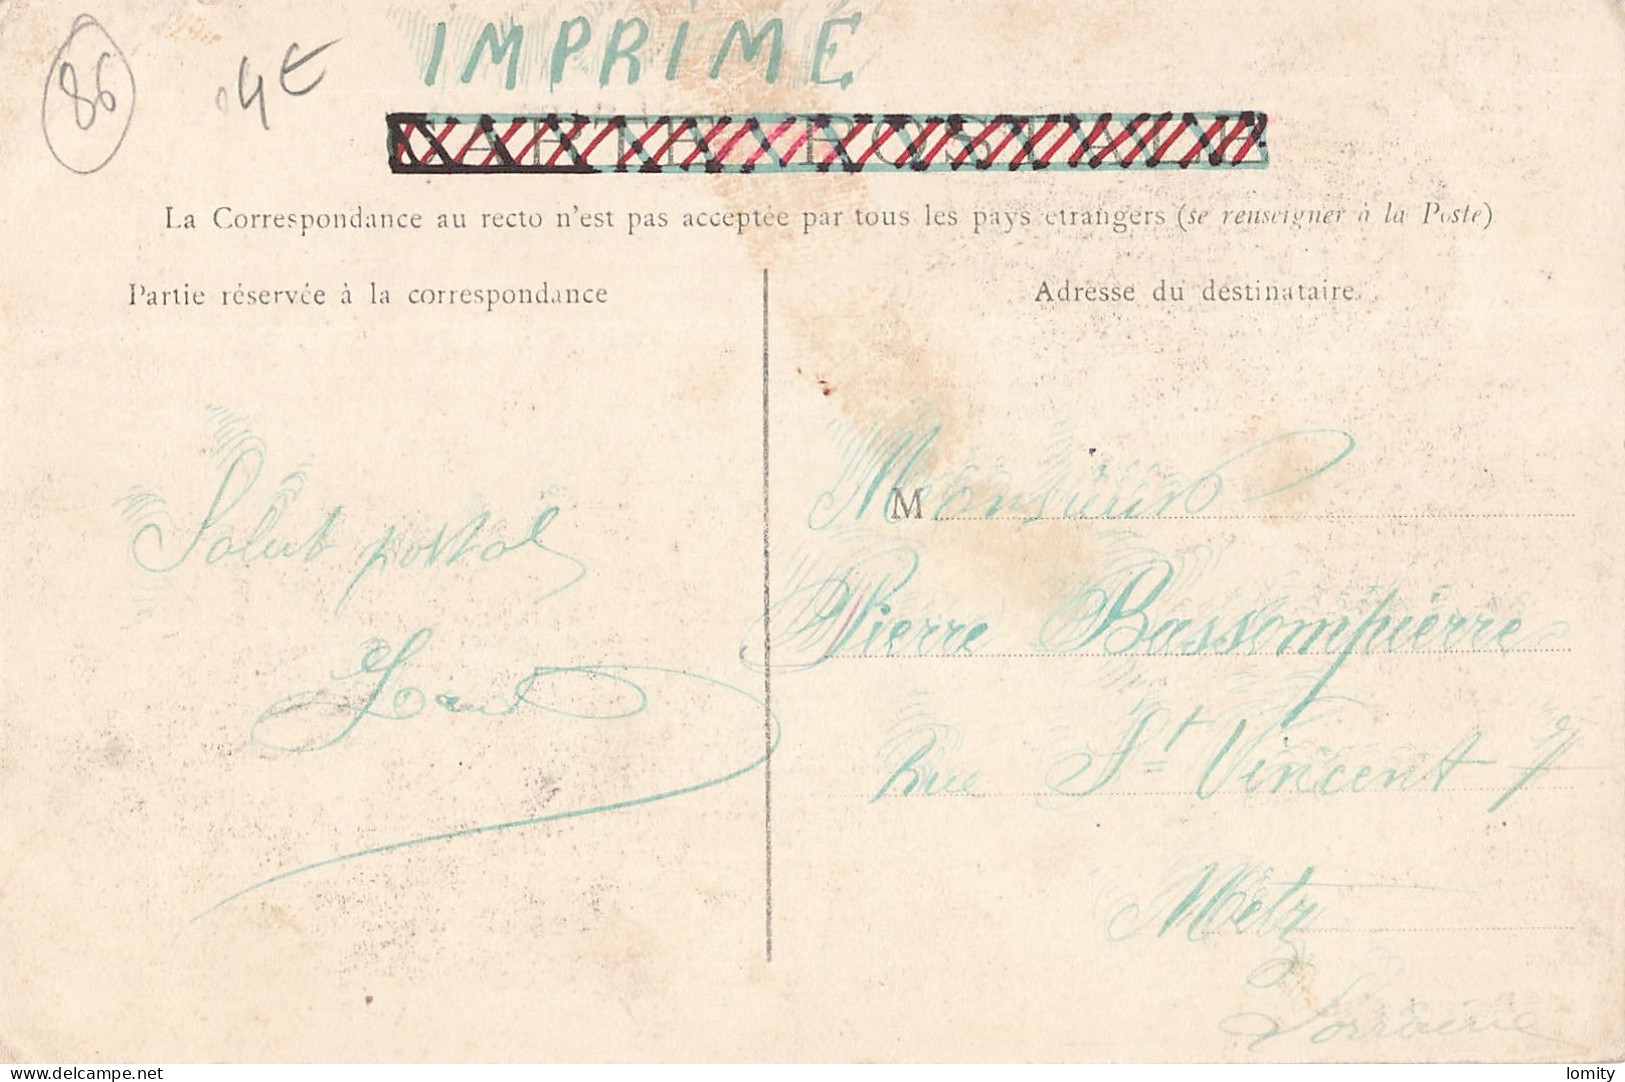 86
4€
IMPRIMÉ
CARTE POSTALE
La Correspondance au recto n'est pas acceptée par tous les pays etrangers (se renseigner à la Poste)
Partie réservée à la correspondance
Adresse du destinataire
Salut postal
M Monsieur
Pierre Bassompierre
Rue St Vincent 7
Metz
Lorraine
lomity